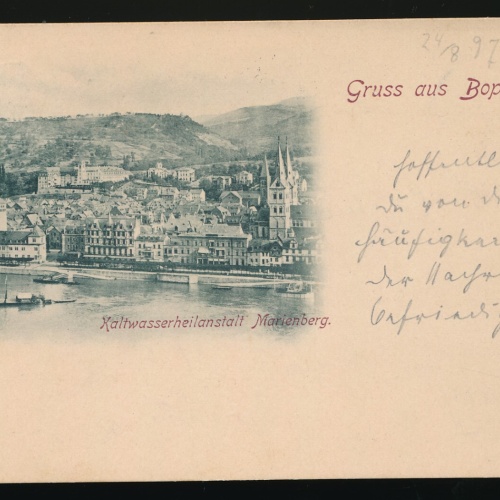 24/8 97
Gruss aus Bop
hoffentl
du von d
häufigkei
der Nachr
befriedig
Kaltwasserheilanstalt Marienberg.